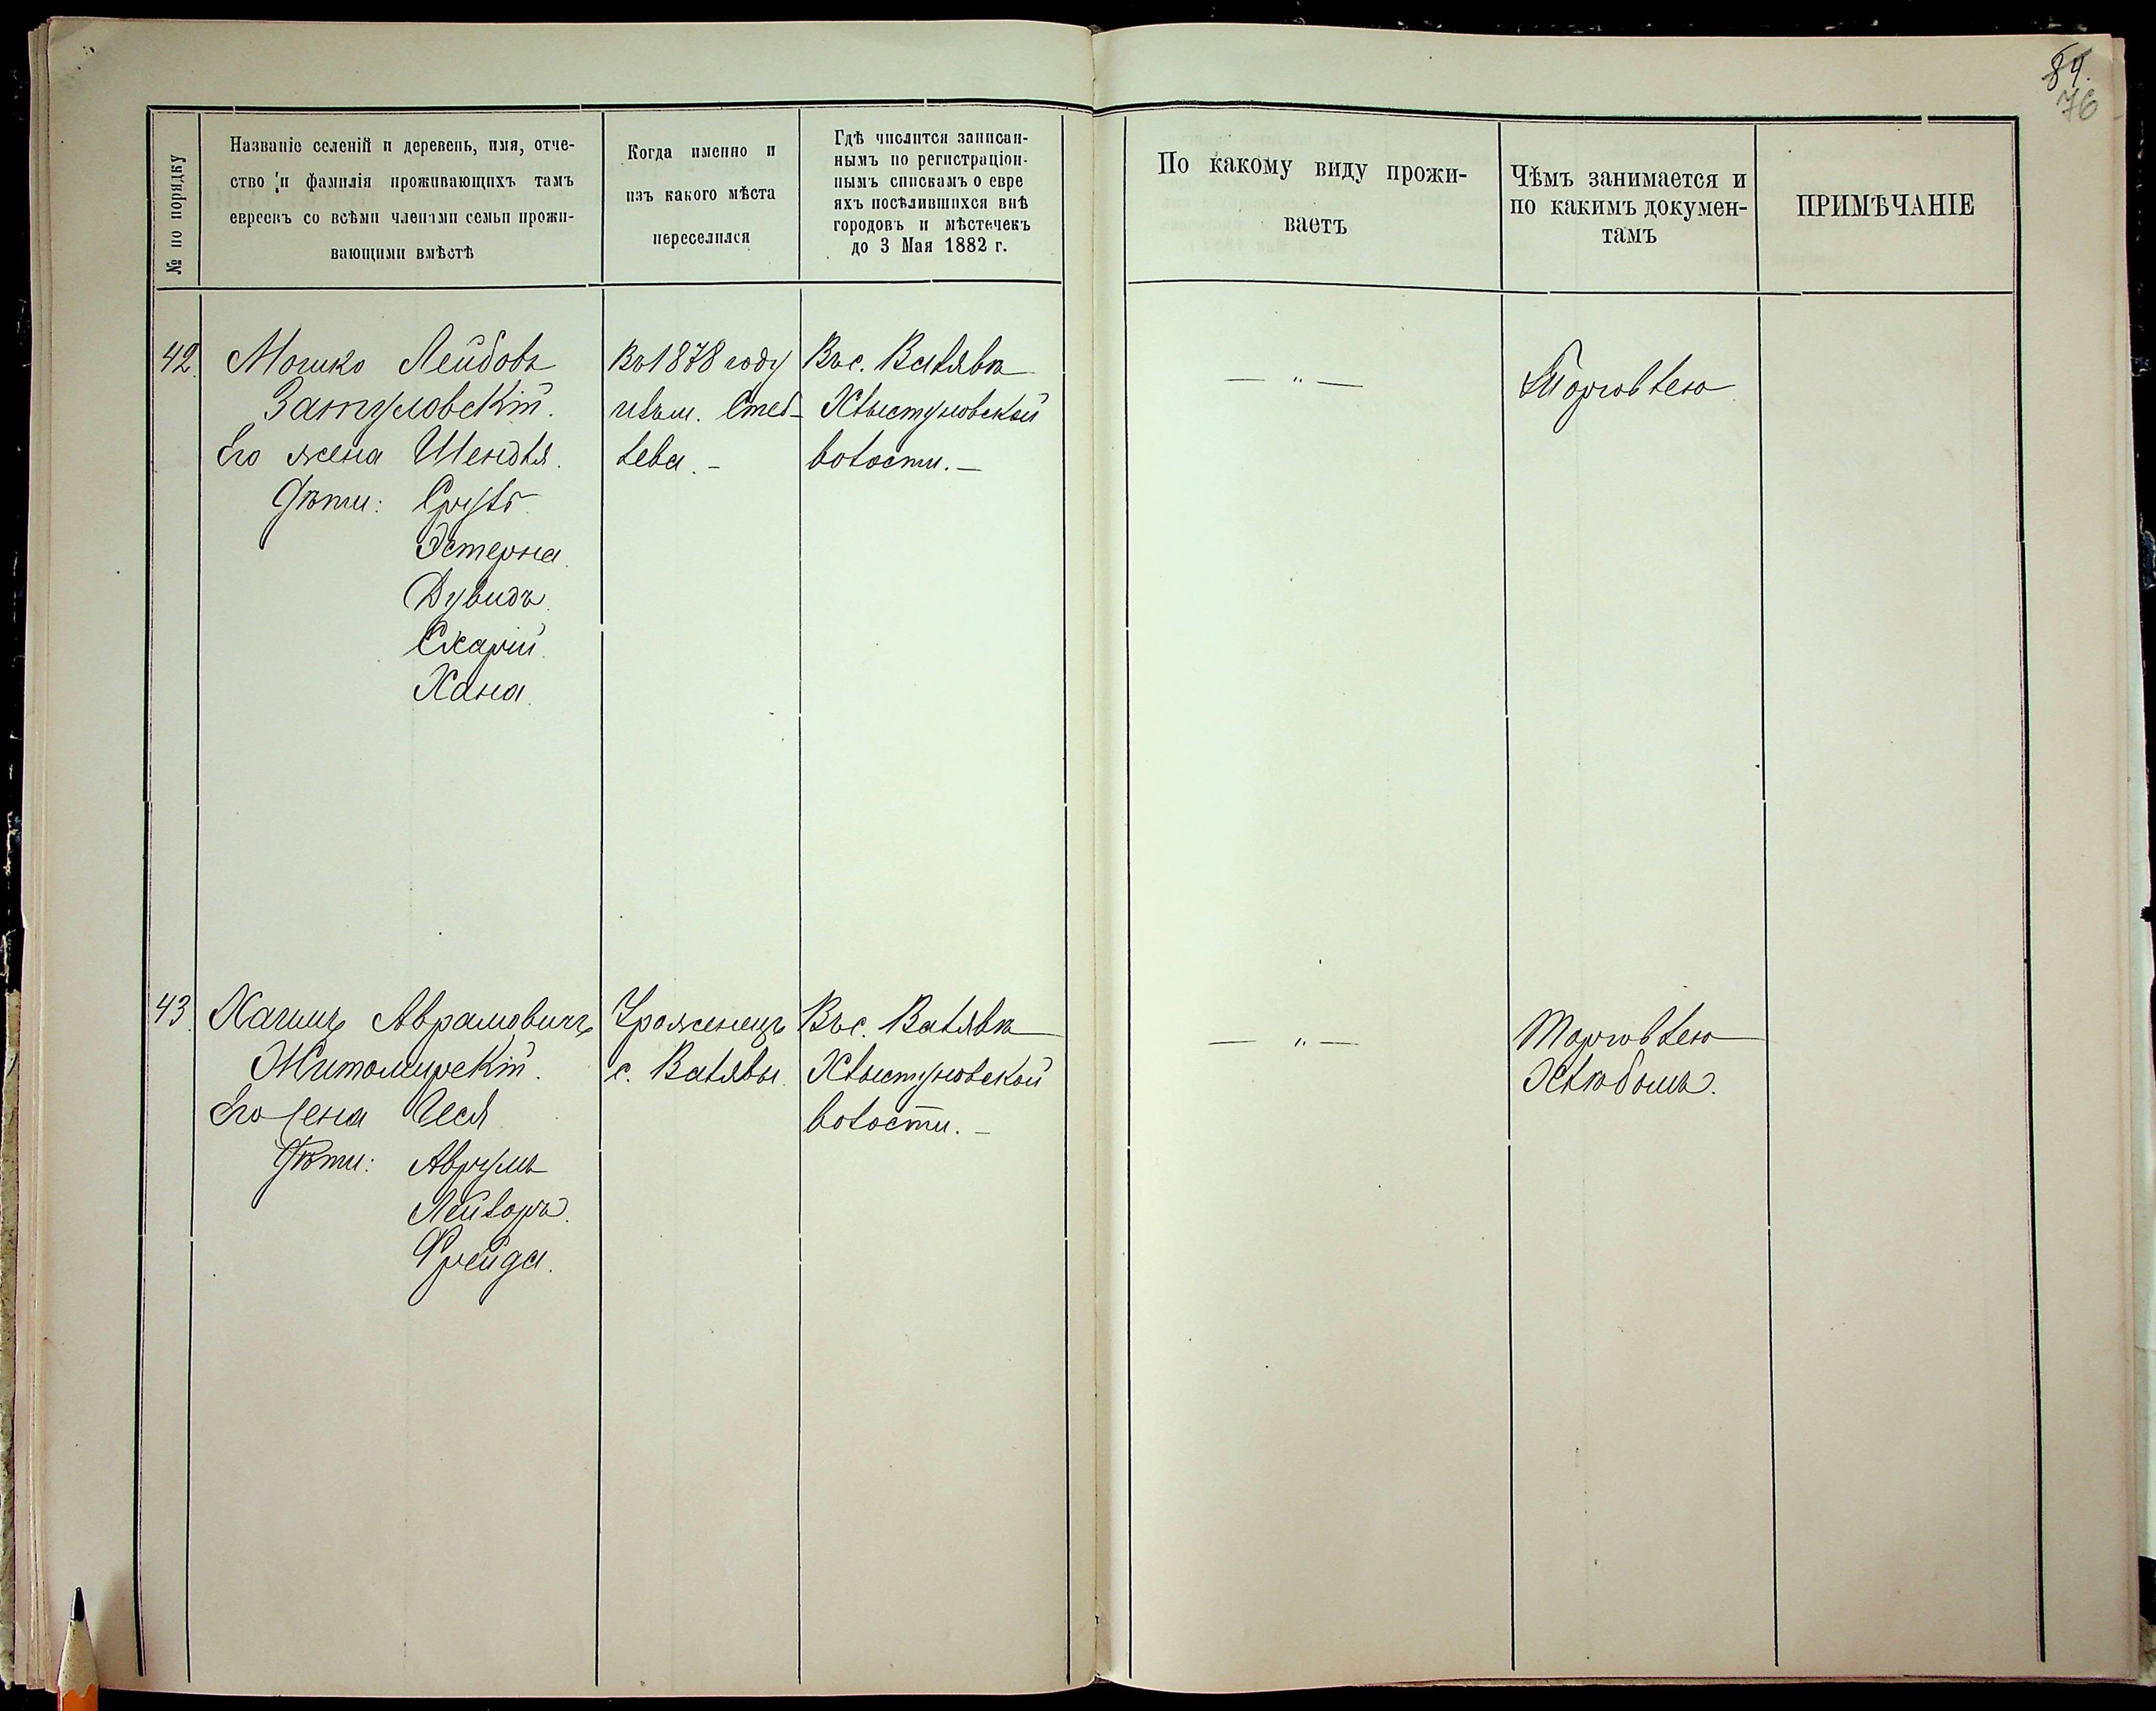 84.
76
№ по порядку
Названіе селеній и деревень, имя, отче-
ство и фамилія проживающихъ тамъ
евреевъ со всѣми членами семьи прожи-
вающими вмѣстѣ
Когда именно и
изъ какого мѣста
переселился
Гдѣ числится записан-
нымъ по регистраціон-
нымъ спискамъ о евре
яхъ посѣлившихся внѣ
городовъ и мѣстечекъ
до 3 Мая 1882 г.
По какому виду прожи-
ваетъ
Чѣмъ занимается и
по какимъ докумен-
тамъ
ПРИМѢЧАНІЕ
42.
Мошко Лейбовъ
Затуловскій.
Его жена Шендля.
Дѣти: Сруль
Эстерна.
Дувидъ.
Схарій.
Хана.
Въ 1878 году
изъ м. Стеб-
лева. –
Въ с. Валявѣ
Хлыстуновской
волости. –
— „ —
Торговлею
43.
Хаимъ Аврамовичъ
Житомирскій.
Его жена Песя
Дѣти: Аврумъ
Лейзоръ.
Фрейда.
Уроженецъ
с. Валявы.
Въ с. Валявѣ
Хлыстуновской
волости. –
— „ —
Торговлею
Хлѣбомъ.